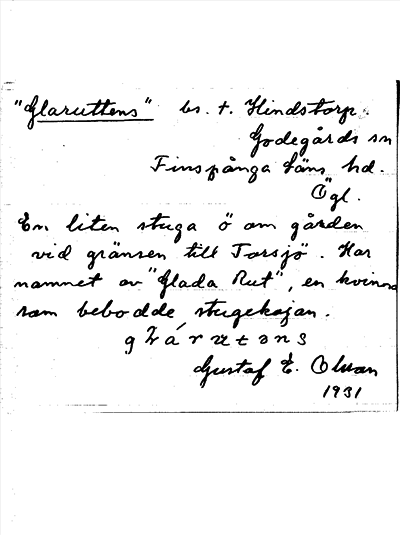 "Glaruttens" bs. t. Hindstorp.
Godegårds sn
Finspånga läns hd.
Ögl.
En liten stuga ö om gården
vid gränsen till Torsjö. Har
namnet av "Glada Rut", en kvinna
som bebodde stugekojan.
Gustaf E. Olsson
1931